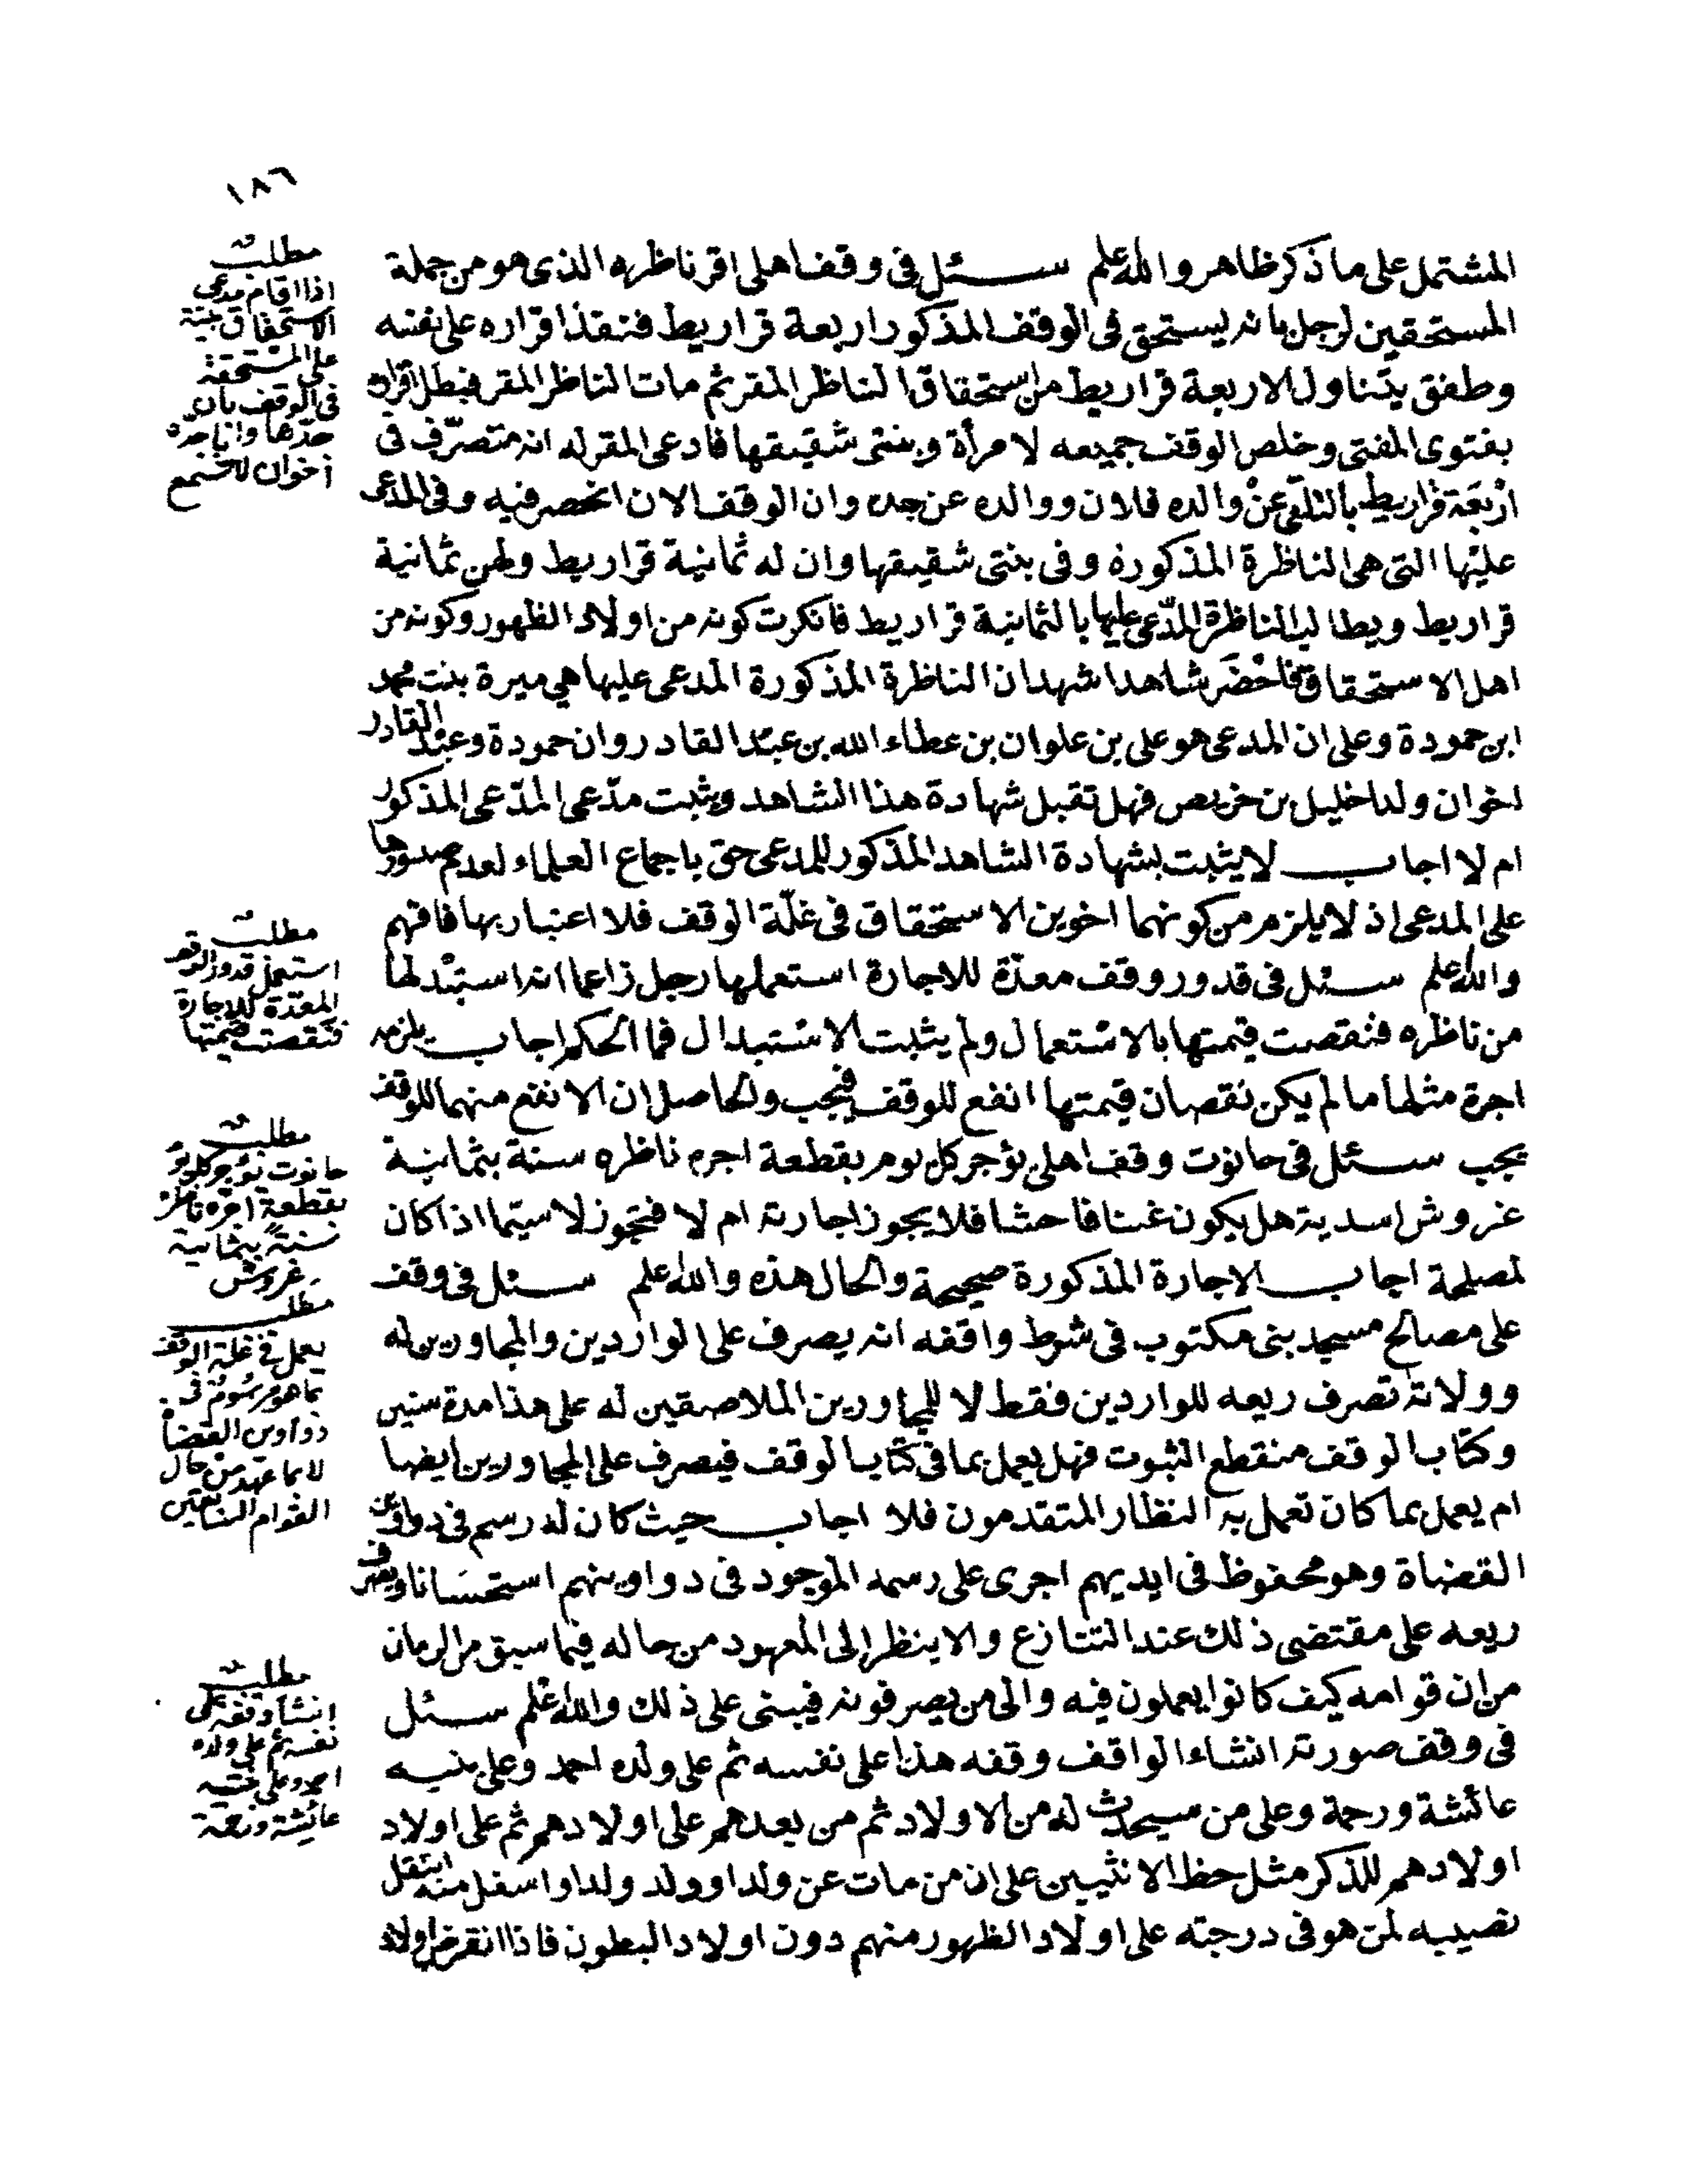 ١٨٦
المشتمل على ما ذكر ظاهر والله علم سئل فى وقف اهلى اقر ناظره الذى هو من جملة
المستحقين لرجل بانه يستحق فى الوقف المذكور اربعة قراريط فنفذ اقراره على نفسه
وطفق يتناول الاربعة قراريط من استحقاق الناظر المقر ثم مات الناظر المقر فبطل اقراره
بفتوى المفتى وخلص الوقف جميعه لامرأة وبنتى شقيقها فادعى المقر له انه متصرّف فى
اربعة قراريط بالتلقى عن والده فلان ووالده عن جده وان الوقف الان انحصر فيه وفى المدعى
عليها التى هى الناظرة المذكورة وفى بنتى شقيقها وان له ثمانية قراريط ولهن ثمانية
قراريط ويطالب الناظرة المدّعى عليها بالثمانية قراريط فانكرت كونه من اولاد الظهور وكونه من
اهل الاستحقاق فاحضر شاهدا شهد ان الناظرة المذكورة المدعى عليها هي ميرة بنت محمد
ابن حمودة وعلى ان المدعى هو على بن علوان بن عطاء الله بن عبد القادر وان حمودة وعبد القادر
اخوان ولدا خليل بن خريص فهل تقبل شهادة هذا الشاهد ويثبت مدّعى المدّعى المذكور
ام لا اجاب لا يثبت بشهادة الشاهد المذكور للمدعى حق باجماع العلماء لعدم صدورها
على المدعى اذ لا يلزم من كونهما اخوين الاستحقاق فى غلّة الوقف فلا اعتبار بها فافهم
والله علم سئل فى قدور وقف معدّة للاجارة استعملها رجل زاعما انه استبدلها
من ناظره فنقصت قيمتها بالاستعمال ولم يثبت الاستبدال فما الحكم اجاب يلزمه
اجرة مثلها ما لم يكن نقصان قيمتها انفع للوقف فيجب والحاصل ان الانفع منهما للوقف
يجب سئل فى حانوت وقف اهلى يؤجر كل يوم بقطعة اجره ناظره سنة بثمانية
غروش اسدية هل يكون غبنا فاحشا فلا يجوز اجارته ام لا فتجوز لا سيّما اذا كان
لمصلحة اجاب الاجارة المذكورة صحيحة والحال هذه والله علم سئل فى وقف
على مصالح مسجد بنى مكتوب فى شرط واقفه انه يصرف على الواردين والمجاورين له
وولاته تصرف ريعه للواردين فقط لا للمجاورين الملاصقين له على هذا مدة سنين
وكتاب الوقف منقطع الثبوت فهل يعمل بما فى كتاب الوقف فيصرف على المجاورين ايضا
ام يعمل بما كان تعمل به النظار المتقدمون فلا اجاب حيث كان له رسم فى دواوين
القضاة وهو محفوظ فى ايديهم اجرى على رسمه الموجود فى دواوينهم استحسانا ويصرف
ريعه على مقتضى ذلك عند التنازع والا ينظر الى المعهود من حاله فيما سبق من الزمان
من ان قوامه كيف كانوا يعملون فيه والى من يصرفونه فيبنى على ذلك والله علم سئل
فى وقف صورته انشاء الواقف وقفه هذا على نفسه ثم على ولده احمد وعلى بنتيه
عائشة ورحمة وعلى من سيحدث له من الاولاد ثم من بعدهم على اولادهم ثم على اولاد
اولادهم للذكر مثل حظ الانثيين على ان من مات عن ولد او ولد ولد او اسفل منه انتقل
نصيبه لمن هو فى درجته على اولاد الظهور منهم دون اولاد البطون فاذا انقرض اولاد
مطلب
اذا اقام مدعى
الاستحقاق بينة
على المستحقة
فى الوقف بان
جدّها وابا جدّه
اخوان لا تسمع
مطلب
استعمل قدور الوقف
المعدّة للاجارة
فنقصت قيمتها
مطلب
حانوت يؤجر كل يوم
بقطعة اجره ناظره
سنة بثمانية
غروش
مطلب
يعمل فى غلة الوقف
بما هو مرسوم فى
دواوين القضاة
لا بما عهد من حال
القوام السابقين
مطلب
انشأ وقفه على
نفسه ثم على ولده
احمد وعلى بنتيه
عائشة ورحمة